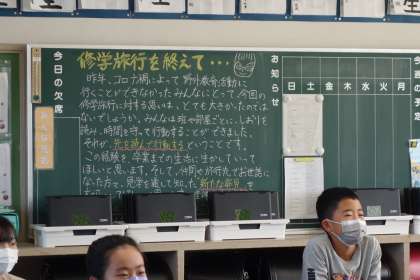 修学旅行を終えて・・・
昨年、コロナ禍によって野外教育活動に
行くことができなかったみんなにとって、今回の
修学旅行に対する思いは、とても大きかったのでは
ないでしょうか。みんなは班や部屋ごとに、しおりを
読み、時間を守って行動することができました。
それが、先を読んで行動するということです。
この経験を、卒業までの生活に生かしていって
ほしいと思います。そして、仲間や旅行先でお世話に
なった方々、見学を通して知った新たな発見を
今日の欠席
お知らせ
日 土 金 木 水 火 月
今日の